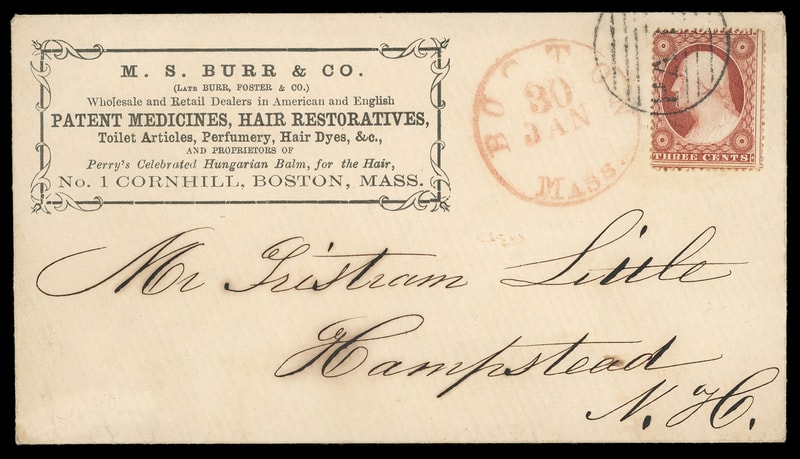 M. S. BURR & CO.
(LATE BURR, FOSTER & CO.)
Wholesale and Retail Dealers in American and English
PATENT MEDICINES, HAIR RESTORATIVES,
Toilet Articles, Perfumery, Hair Dyes, &c.,
AND PROPRIETORS OF
Perry's Celebrated Hungarian Balm, for the Hair,
No. 1 CORNHILL, BOSTON, MASS.
BOSTON
30
JAN
MASS.
PAID
THREE CENTS
Mr Tristram Little
Hampstead
N. H.